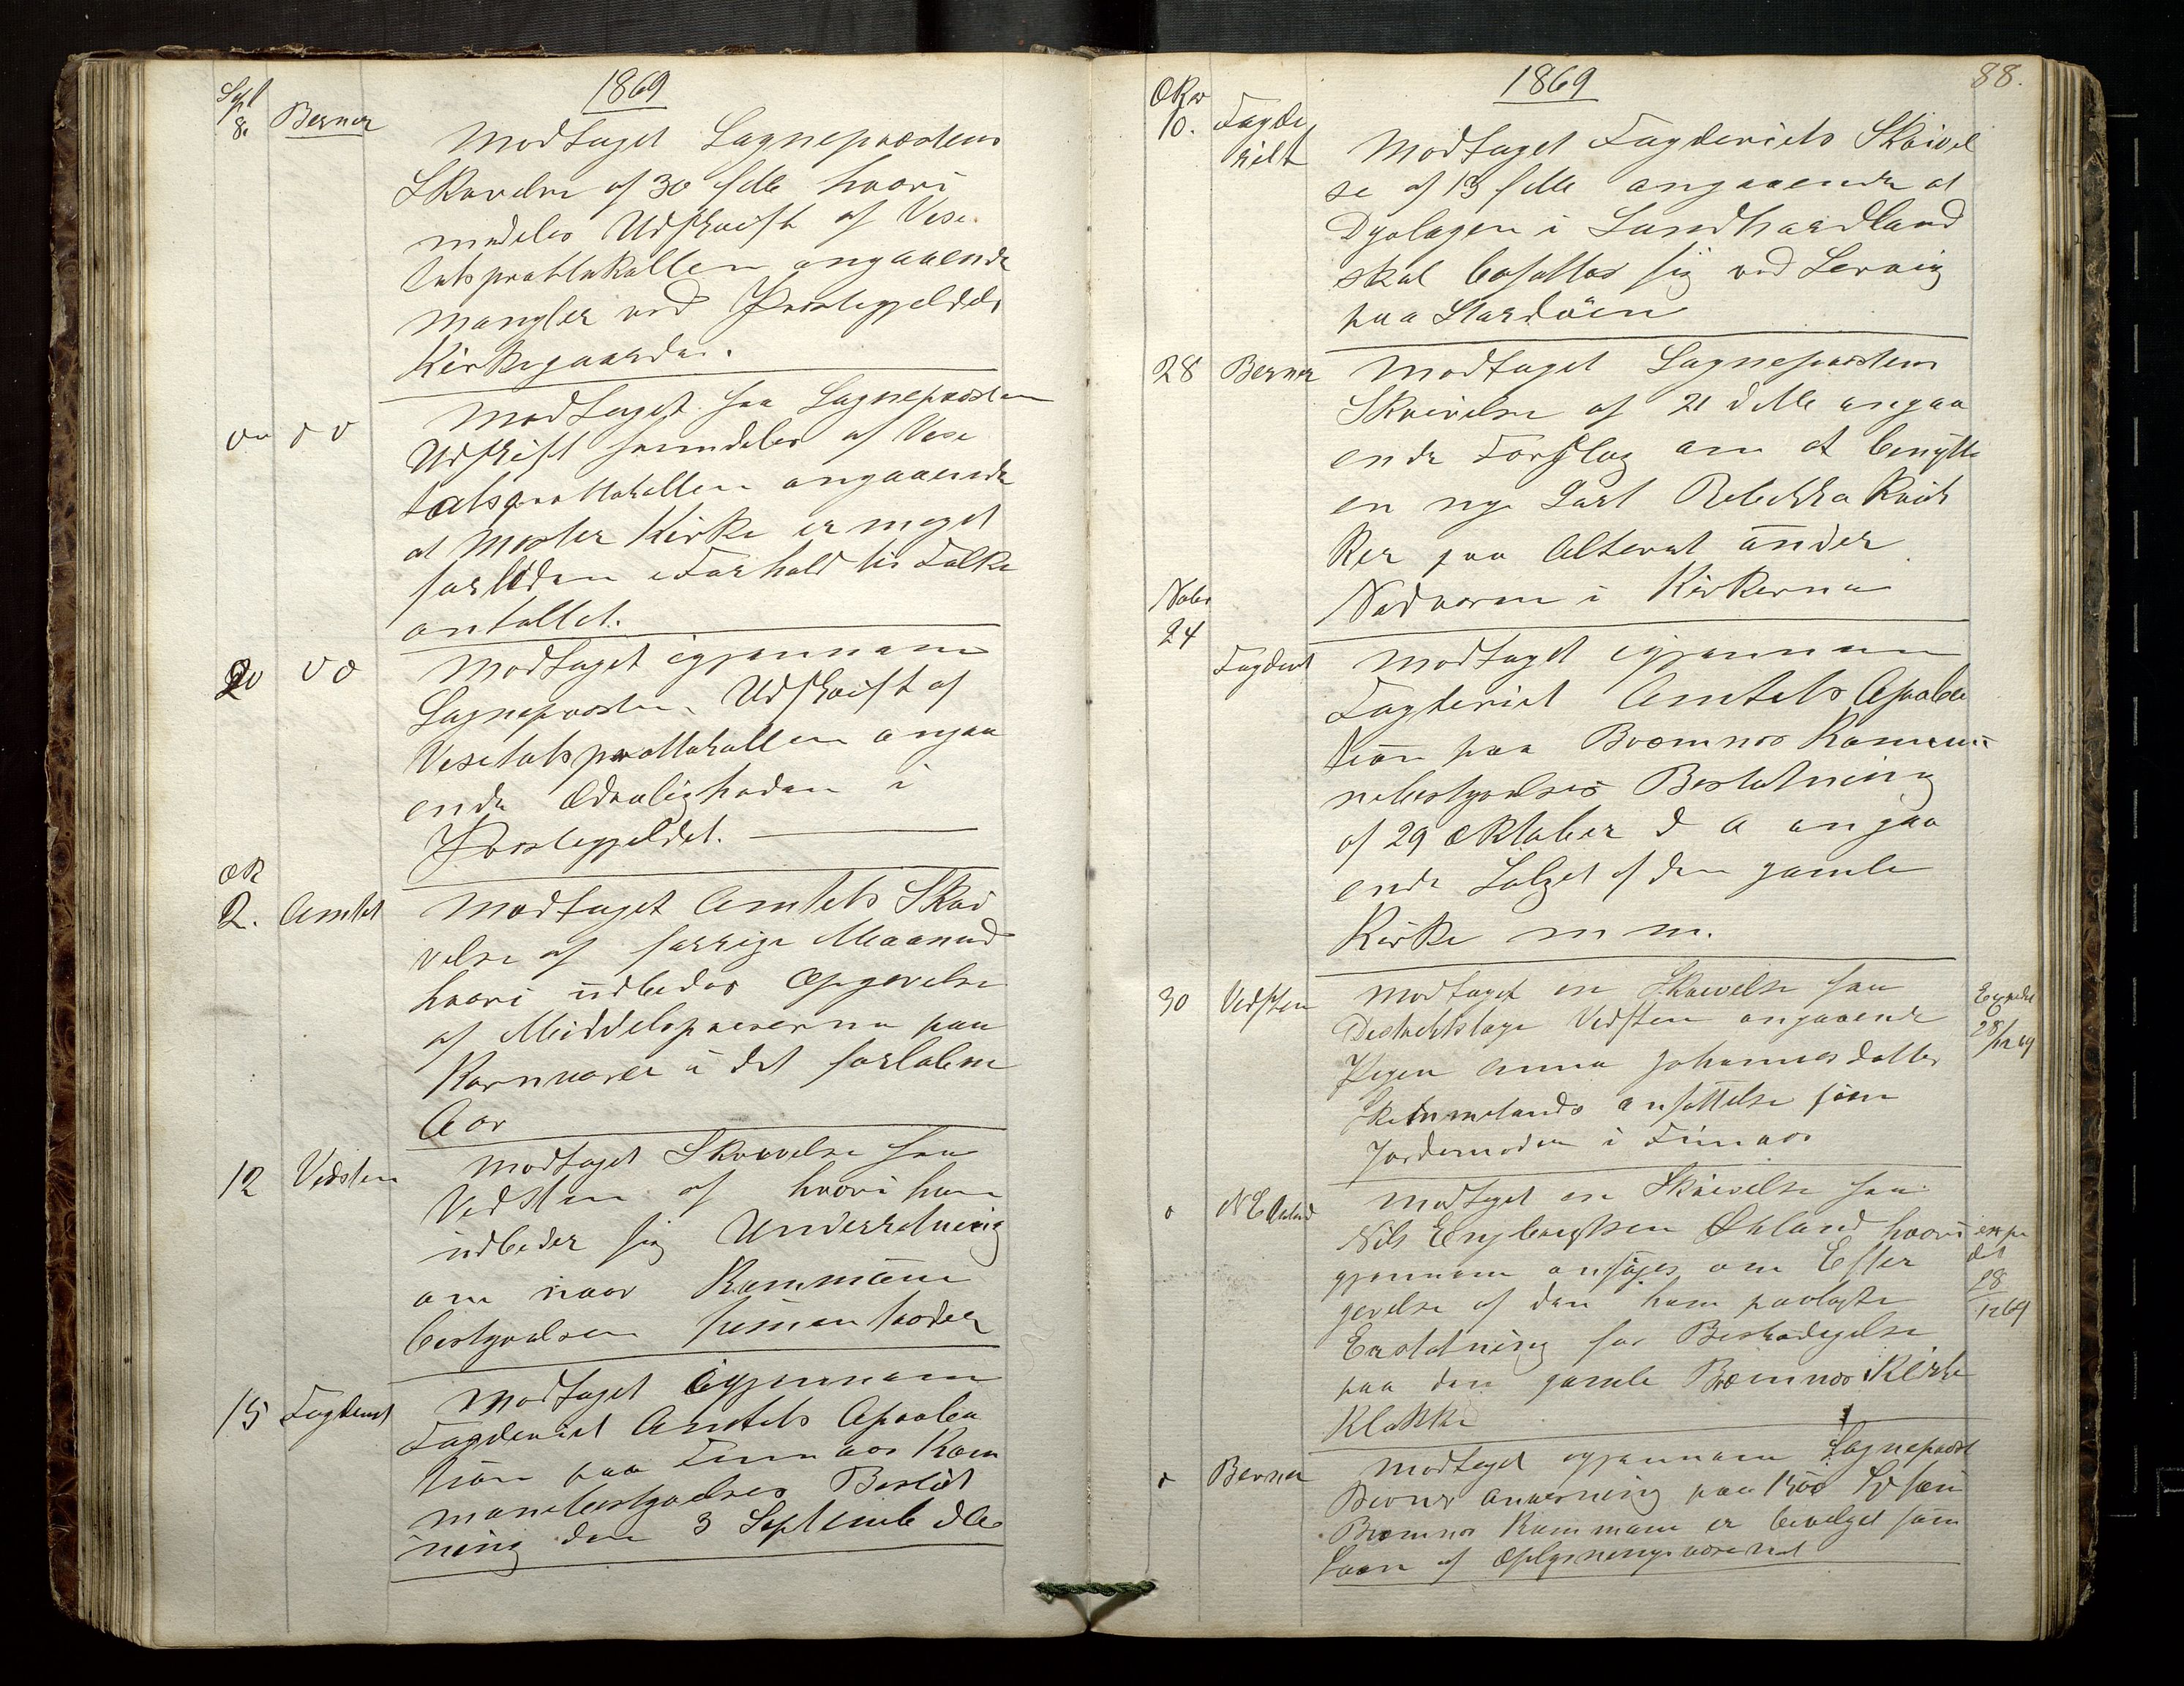 1869
Sept
8. Berner
Modtaget Sagnepræstens
Skrivelse af 30 f Mt hvori
medeles Udskrift af Vise
tatsprottokollen angaaende
mangler ved Præstegjeldets
Kirkegaarder.
Modtaget fra Sagnepræsten
Udskrift fremdeles af Vise
tatsprottokollen angaaende
at Moster Kirke er meget
forliden i Forhold til Folke
antallet.
Modtaget igjennem
Sagnepræsten Udskrift af
Visetatsprottokollen angaa
ende Ædrueligheden i
Præstegjeldet.
Ok
2. Amtet
Modtaget Amtets Skri
velse af forrige Maaned
hvori udbedes Opgivelse
af Middelspriserne paa
Kornvarer i det forløbne
Aar
12 Vedsten
Modtaget Skrivelse fra
Vedsten af hvori han
udbeder sig Underretning
om naar Kommune
bestyrelsen sammentræder
15 Fogderiet
Modtaget igjennem
Fogderiet Amtets Aproba
tion paa Finnaas Kom
munebestyrelses Beslut
ning den 3 Septemb dA
1869
88.
Okr
10. Fogde
riet
Modtaget Fogderiets Skrivel
se af 13 f Mt angaaende at
Dyrlægen i Sundhordland
skal bosættes sig ved Lervig
paa Stordøen
28 Berner
Modtaget Sagnepræstens
Skrivelse af 21 d Mt angaa
ende Forslag om at benytte
en nye Sort
paa Alteret under
Nadveren i Kirkerne
Nober
24
Fogderiet
Modtaget igjennem
Fogderiet Amtets Aproba
tion paa Bremnes Kommu
nebestyrelses Beslutning
af 29 Oktober d A angaa
ende Salget af den gamle
Kirke m m.
30 Vedsten
Modtaget en Skrivelse fra
Destriktslæge Vedsten angaaende
Pigen Anna Johannesdatter
ansættelse som
Jordemoder i Finnaas
28/12 69
N E
Modtaget en Skrivelse fra
Nils Engbregtsen Økland hvori
gjennem ansøges om Efter
givelse af den ham paalagte
Erstatning for Beskadigelse
paa den gamle Bremnes Kirke
Klokke
expe
det
28
12 69
Berner
Modtaget igjennem Sagnepræst
Berner Anvisning paa 1500 Spd som
Bremnes Kommune er bevilget som
Laan af Oplysningsvæsenet